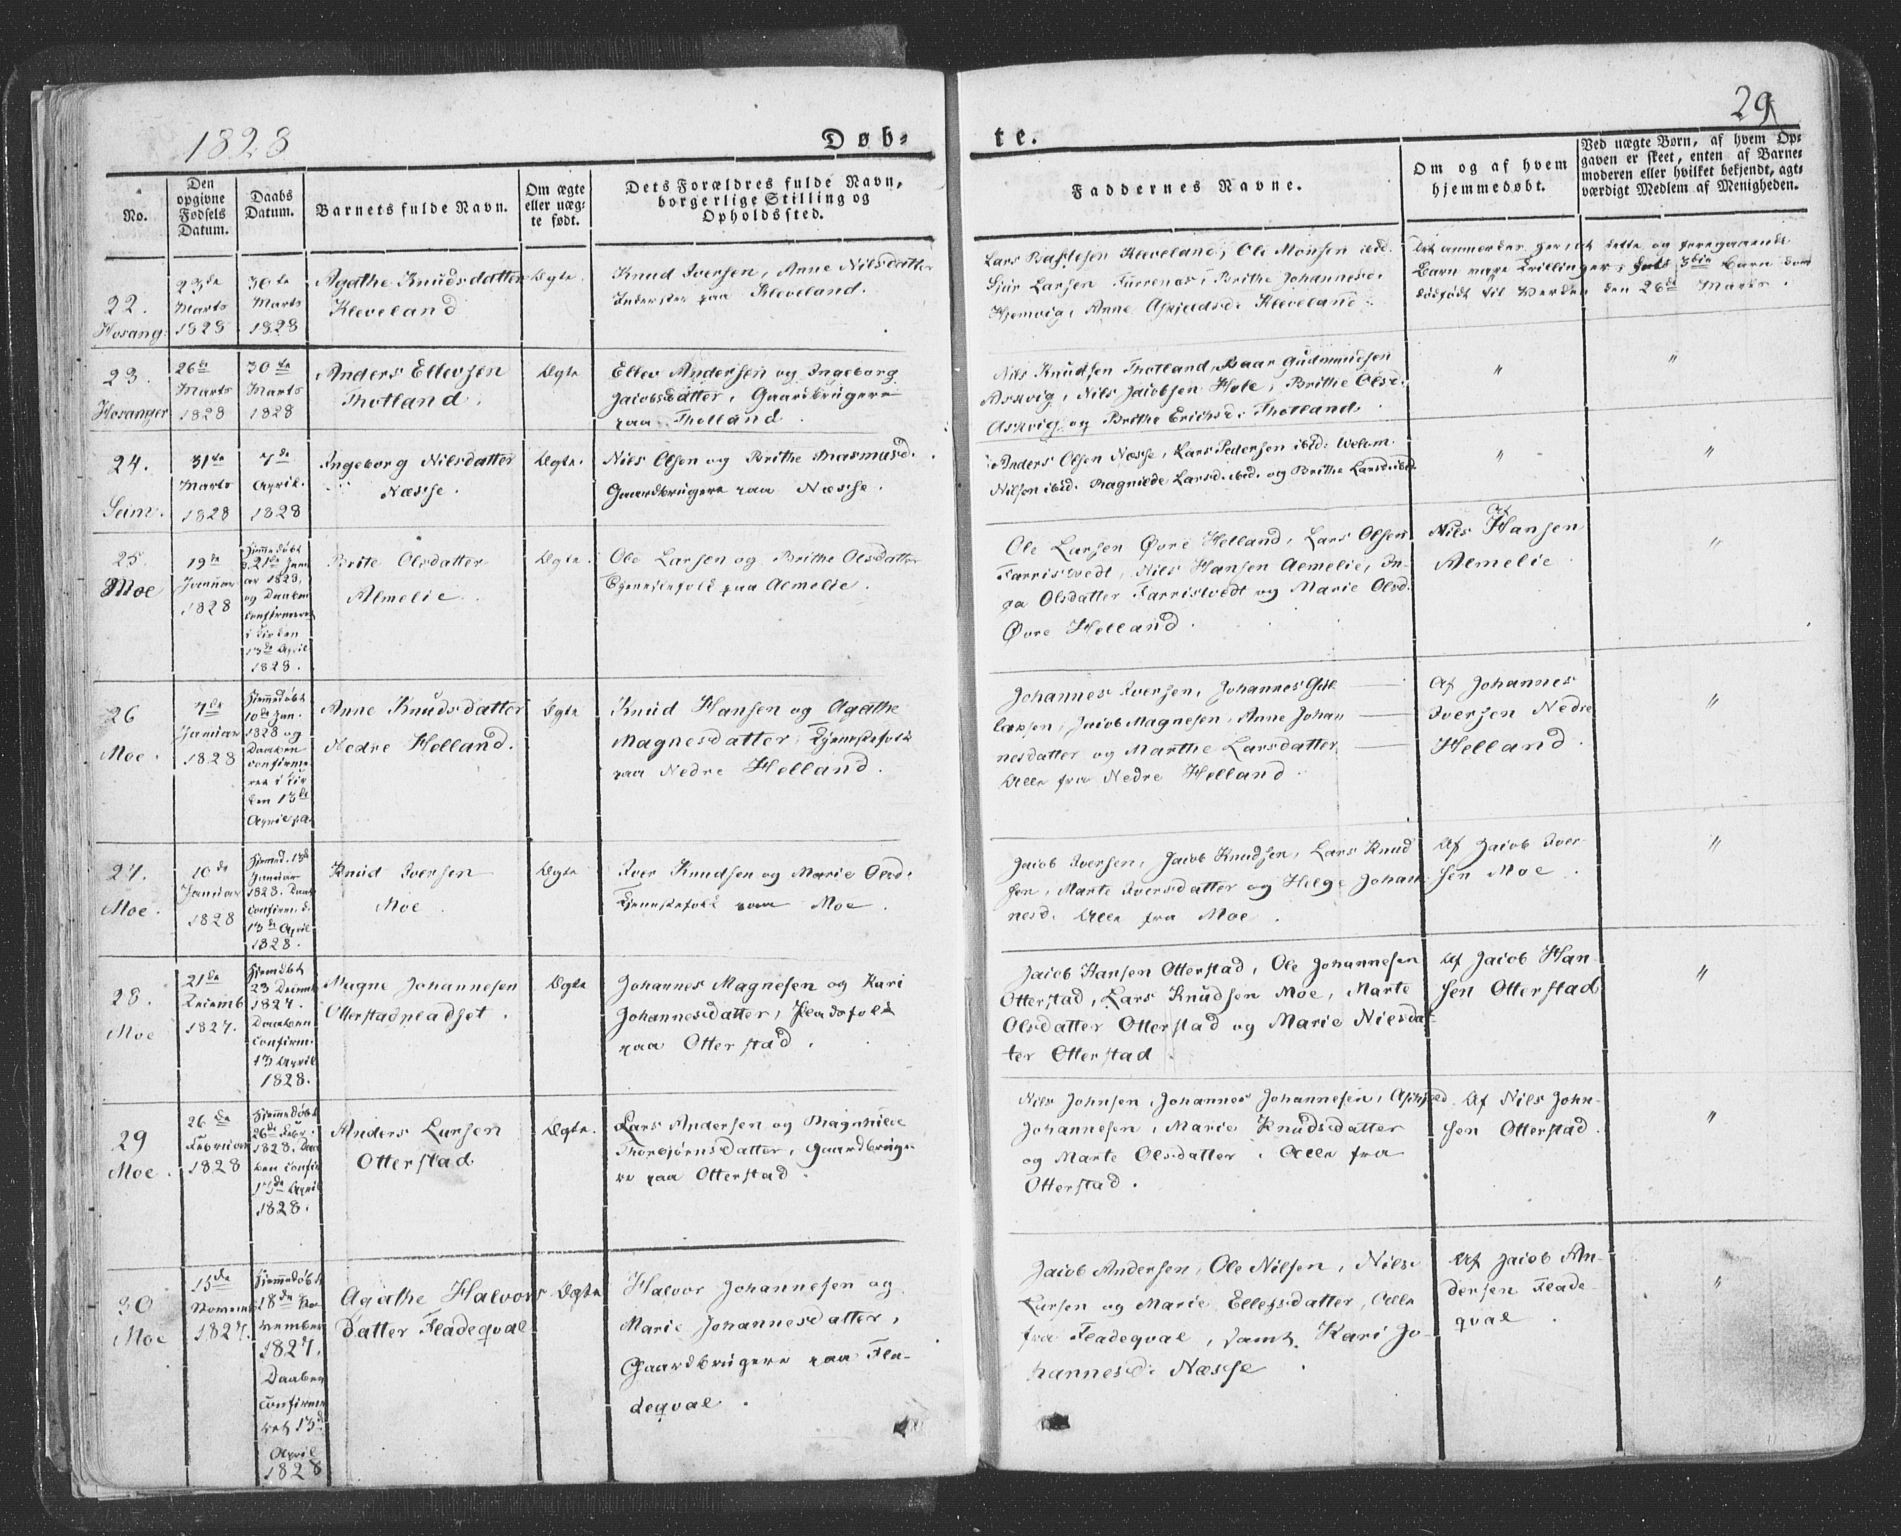 1828
Døb-
te.
29
No.
Den
opgivne
Fødsels
Datum.
Daabs
Datum.
Barnets fulde Navn.
Om ægte
eller uæg-
te født.
Dets Forældres fulde Navn,
borgerlige Stilling og
Opholdssted.
Faddernes Navne.
Om og af hvem
hjemmedøbt.
Ved uægte Børn, af hvem Op-
gaven er skeet, enten af Barne-
moderen eller hvilket bekjendt, agt-
værdigt Medlem af Menigheden.
22.
Hosang.
23de
Marts
1828
30te
Marts
1828
Agathe Knudsdatter
Kleveland
Ægte
Knud Iversen, Anne Nilsdatter
paa Kleveland.
Lars Kleveland, Ole Monsen ibid.
Siur Larsen Brithe Johannesd.
Anne Kleveland
Det anmerkes at dette og foregaaende
Barn vare Trillinger, 3die Barn kom
dødfødt til Verden den 26de Marts.
23.
Hosanger
26de
Marts
1828
30te
Marts
1828
Anders Ellevsen
Thotland.
Ægte
Ellev Andersen og Ingeborg
Jacobsdatter, Gaardbrugere
paa Thotland.
Nils Knudsen Thotland, Baar Gudmundsen
Askvig, Nils Jacobsen Hole, Brithe Olsd.
Askvig og Brithe Erichsd. Thotland.
"
"
24.
Sam.
31te
Marts
1828
7de
April.
1828
Ingeborg Nilsdatter
Næsse.
Ægte.
Nils Olsen og Brithe Rasmusd.
Gaardbrugere paa Næsse.
Anders Olsen Næsse, Lars Pedersen ibid.
Nilsen ibid. Ragnilde Larsd. ibid. og Brithe Larsd. ibid.
"
"
25.
Moe
19de
Januar
1828
Hjemmedøbt
d. 21de Janu
ar 1828,
og Daaben
confirmeret
i Kirken
13de April
1828.
Brite Olsdatter
Almelie.
Ægte.
Ole Larsen og Brithe Olsdatter
Tjenestefolk paa Aemelie.
Ole Larsen Øvre Helland, Lars Olsen
Farristvedt, Nils Hansen Aemelie, In-
ga Olsdatter Farristvedt og Marie Olsd.
Øvre Helland.
Af
Nils Hansen
Almelie
"
26
Moe.
7de
Januar
1828
Hjemmedøbt
10de Jan.
1828 og
Daaben
confirme
ret i Kir
ken 13de
April
Anne Knudsdatter
Nedre Helland.
Ægte
Knud Hansen og Agathe
Magnesdatter, Tjenestefolk
paa Nedre Helland.
Johannes Iversen, Johannes
Jacob Magnesen, Anne Johan
nesdatter og Marthe Larsdatter
Alle fra Nedre Helland.
Af Johannes
Iversen Nedre
Helland.
"
27.
Moe.
10de
Januar
1828
Hjemmed. 13de
Januar
1828. Daab.
confirm. d.
13de April
1828.
Knud Iversen
Moe.
Ægte
Iver Knudsen og Marie Olsd.
Tjenestefolk paa Moe.
Jacob Iversen, Jacob Knudsen, Lars Knud
sen, Marte Iversdatter og Helge Johan
nesd. Alle fra Moe.
Af Jacob Iver
sen Moe.
"
28.
Moe
21de
Decemb
1827.
Hjemdøbt
23 Decemb
1827.
Daaben
confirm.
13 April
1828.
Magne Johannesen
Otterstadpladset.
Ægte
Johannes Magnesen og Kari
Johannesdatter, Pladsfolk
paa Otterstad.
Jacob Hansen Otterstad, Ole Johannesen
Otterstad, Lars Knudsen Moe, Marte
Olsdatter Otterstad og Marie Nilsdat-
ter Otterstad.
Af Jacob Han-
sen Otterstad
"
29
Moe.
26de
Februar
1828
Hjemmedøbt
26de Febr.
1828. Daa
ben confir
13de April
1828.
Anders Larsen
Otterstad
Ægte.
Lars Andersen og Magnhilde
Thorbjørnsdatter, Gaardbruge-
re paa Otterstad.
Nils Johnsen, Johannes Johannesen, Askjeld
Johannesen, Marie Knudsdatter
og Marte Olsdatter. Alle fra
Otterstad.
Af Nils John-
sen Otterstad.
"
30
Moe
15de
Novemb
1827.
Hjemmedøbt
18de No-
vember
1827.
Daaben
confirme
ret 13de
April
1828
Agathe Halvors
datter Fladeqval
Ægte
Halvor Johannesen og
Marie Johannesdatter,
Gaardbrugere paa Fla-
deqval.
Jacob Andersen, Ole Nilsen, Nils
Larsen og Marie Ellefsdatter, Alle
fra Fladeqval, samt Kari Jo-
hannesd. Næsse.
Af Jacob An-
dersen Flade-
qval.
"